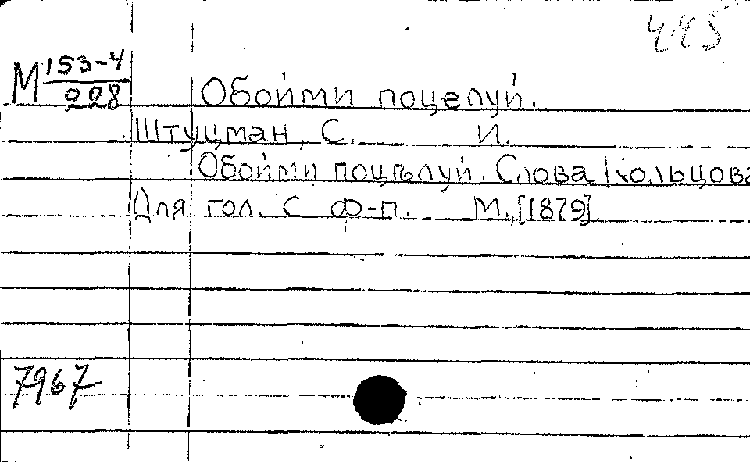 445
М 153-4/228
Обойми поцелуй.
Штуцман, С. И.
Обойми поцѣлуй. Слова Кольцова
Для гол. с ф-п. М., [1879]
7967